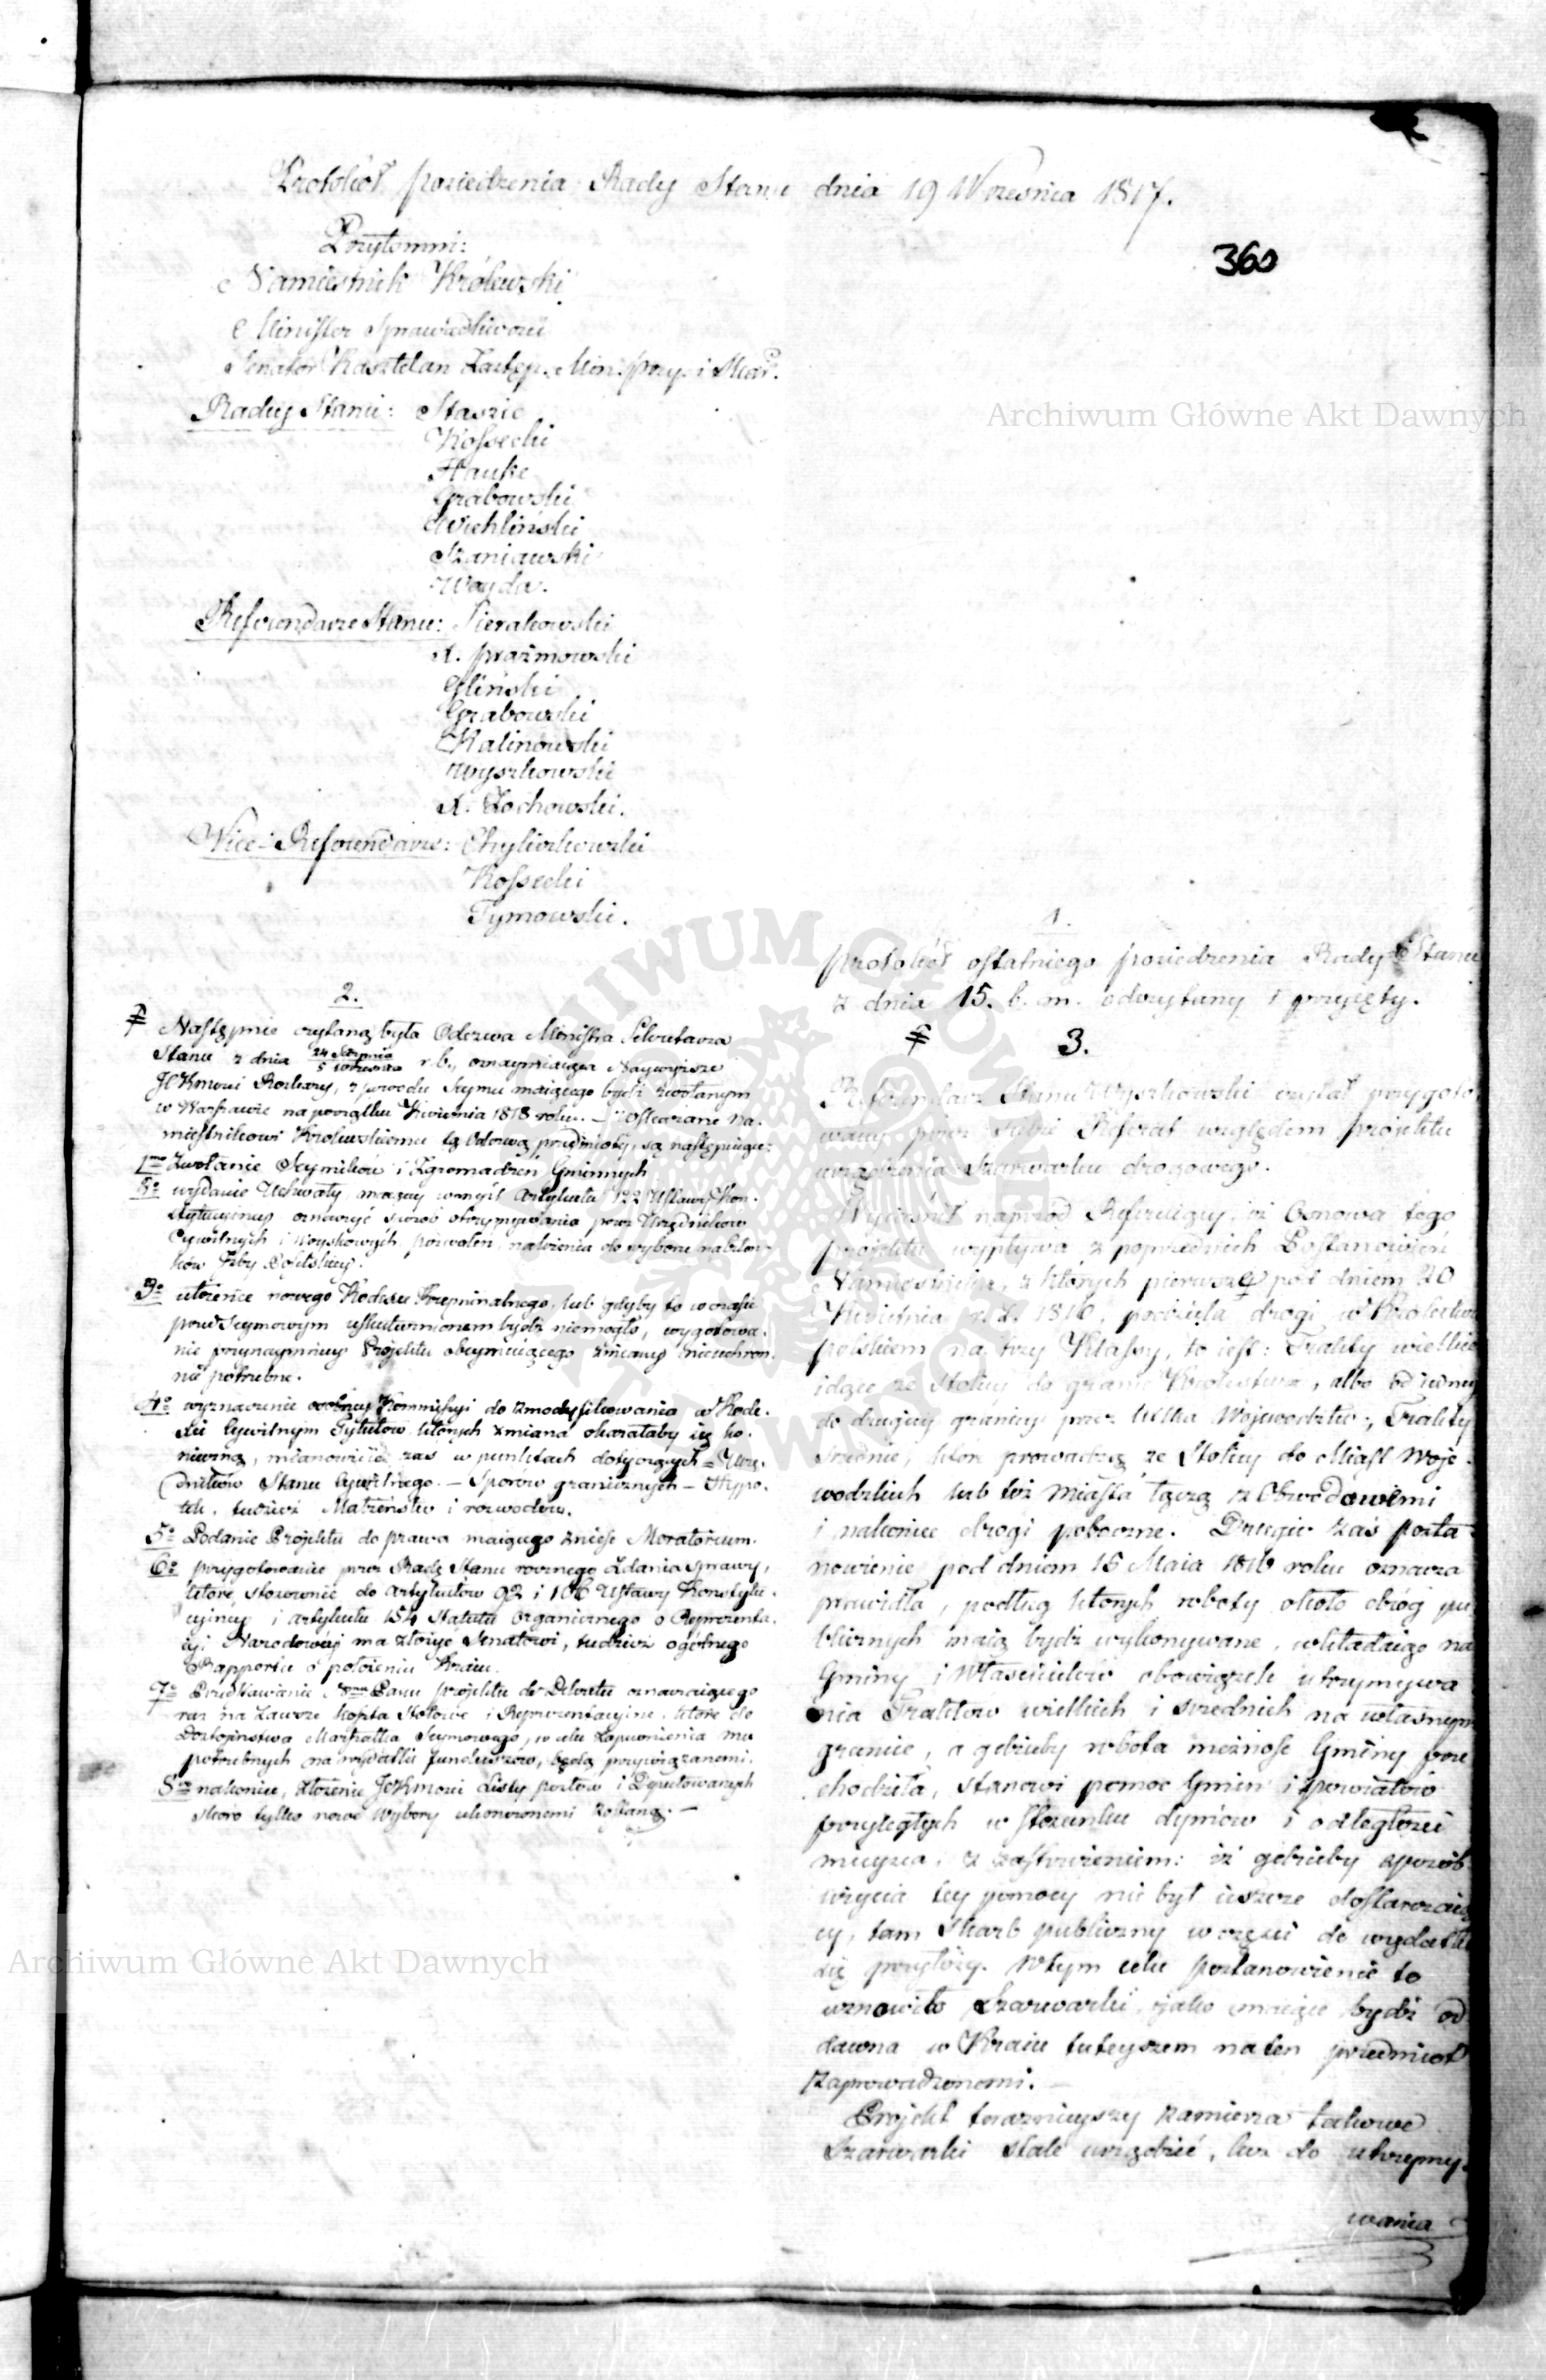 Protokół posiedzenia Rady Stanu dnia 19 Września 1817.
360
Przytomni:
Namiestnik Królewski
Minister Sprawiedliwości
Senator Kasztelan Zastęp. Min: przy. i
Radcy Stanu: Staszic
Kossecki
Hauke
Grabowski
Wichliński
Szaniawski
Woyda.
Referendarze Stanu: Sierakowski
X. Prażmowski
Gliński
Grabowski
Kalinowski
Wyszkowski
X. Żochowski.
Vice-Referendarze: Chyliczkowski
Kossecki
Tymowski.
1.
Protokół ostatniego posiedzenia Rady Stanu
z dnia 15. b. m. odczytany i przyięty.
2.
Następnie czytaną była Odezwa Ministra Sekretarza
Stanu z dnia 24 Sierpnia / 5 Września r. b., oznaymiaiąca Naywyższe
JCKMości Rozkazy, z powodu Seymu maiącego bydź zwołanym
w Warszawie na początku Kwietnia 1818 roku. – Poskazane Na-
miestnikowi Królewskiemu tą Odezwą przedmioty, są następuiące:
1mo Zwołanie Seymików i Zgromadzeń Gminnych
2o wydanie Uchwały maiącey w myśl Artykułu 122 Ustawy Kon-
stytucyiney oznaczyć sposób otrzymywania przez Urzędników
Cywilnych i Woyskowych pozwoleń należenia do wyboru na Człon-
ków Izby Poselskiey.
3o ułożenie nowego Kodexu Kryminalnego, lub gdyby to w czasie
przed Seymowym uskutecznionem bydź niemogło, wygotowa-
nie przynaymniey Projektu obeymuiącego zmiany nieuchron-
nie potrzebne.
4o wyznaczenie osobney Kommissyi do zmodyfikowania w Kode-
xie Cywilnym Tytułów których zmiana okazałaby się ko-
nieczną, mianowicie zaś w punktach dotyczących – Urzę-
dników Stanu Cywilnego. – Sporów granicznych – Hypo-
tek, tudzież Małżeństw i rozwodów.
5o Podanie Projektu do prawa maiącego znieść Moratorium.
6o przygotowanie przez Radę Stanu rocznego Zdania sprawy,
które stosownie do Artykułów 92 i 106 Ustawy Konstytu-
cyiney i artykułu 154 Statutu Organicznego o Reprezenta-
cyi Narodowey ma złożyć Senatowi, tudzież ogólnego
Rapportu o położeniu Kraiu.
7o Przedstawienie Panu projektu do Dekretu oznaczaiącego
raz na zawsze koszta Stołowe i Reprezentacyine, które do
Dostoieństwa Marszałka Seymowego, w celu zapewnienia mu
potrzebnych na wydatki funduszów, będą przywiązanemi.
8vo nakoniec, złożenie JCKMości Listy posłów i Deputowanych
skoro tylko nowe Wybory ukończonemi zostaną. –
3.
Referendarz Stanu Wyszkowski czytał przygoto-
wany przez siebie Referat względem projektu
urządzenia Szarwarku drogowego.
Wyiaśnił naprzód Referuiący, iż Osnowa tego
projektu wypływa z poprzednich Postanowień
Namiestnika, z których pierwsze pod dniem 20
Kwietnia r. z. 1816, podziela drogi w Królestwie
polskiem na trzy Klassy, to iest: Trakty wielkie
idące ze Stolicy do granic Królestwa, albo od iedney
do drugiey granicy przez kilka Woiewództw, Trakty
średnie, które prowadzą ze Stolicy do Miast Woie-
wodzkich lub też Miasta łączą z Obwodowemi
i nakoniec drogi poboczne. Drugie zaś posta-
nowienie pod dniem 15 Maia 1816 roku oznacza
prawidła, podług których roboty około dróg pu-
blicznych maią bydź wykonywane, wkładaiąc na
Gminy i Właścicielów obowiązek utrzymywa-
nia Traktów wielkich i średnich na własnym
gruncie, a gdzieby robota możność Gminy prze-
chodziła, stanowi pomoc Gmin i powiatów
przyległych w stosunku dymów i odległości
mieysca, z zastrzeżeniem: iż gdzieby sposób
użycia tey pomocy nie był ieszcze dostarczaią-
cy, tam Skarb publiczny w części do wydatku
się przyłoży. W tym celu postanowienie to
wznowiło Szarwarki, iako maiące bydź od
dawna w Kraiu tuteyszem na ten przedmiot
zaprowadzonemi. –
Projekt teraznieyszy zamierza takowe
Szarwarki stale urządzić, lecz do utrzymy-
wania
Archiwum Główne Akt Dawnych
Archiwum Główne Akt Dawnych